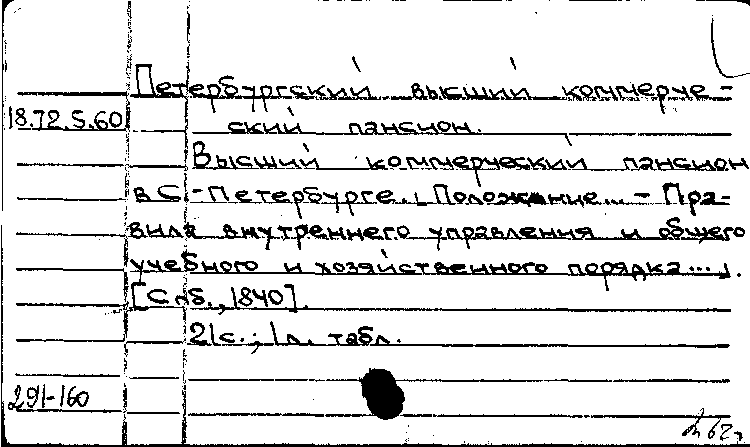 Петербургский высший коммерче-
18.72.5.60
ский пансион.
Высший коммерческий пансион
в С.-Петербурге. ⌊Положение... - Пра-
вила внутреннего управления и общего
учебного и хозяйственного порядка...⌋.
[Спб., 1840].
21с.; 1л. табл.
291-160